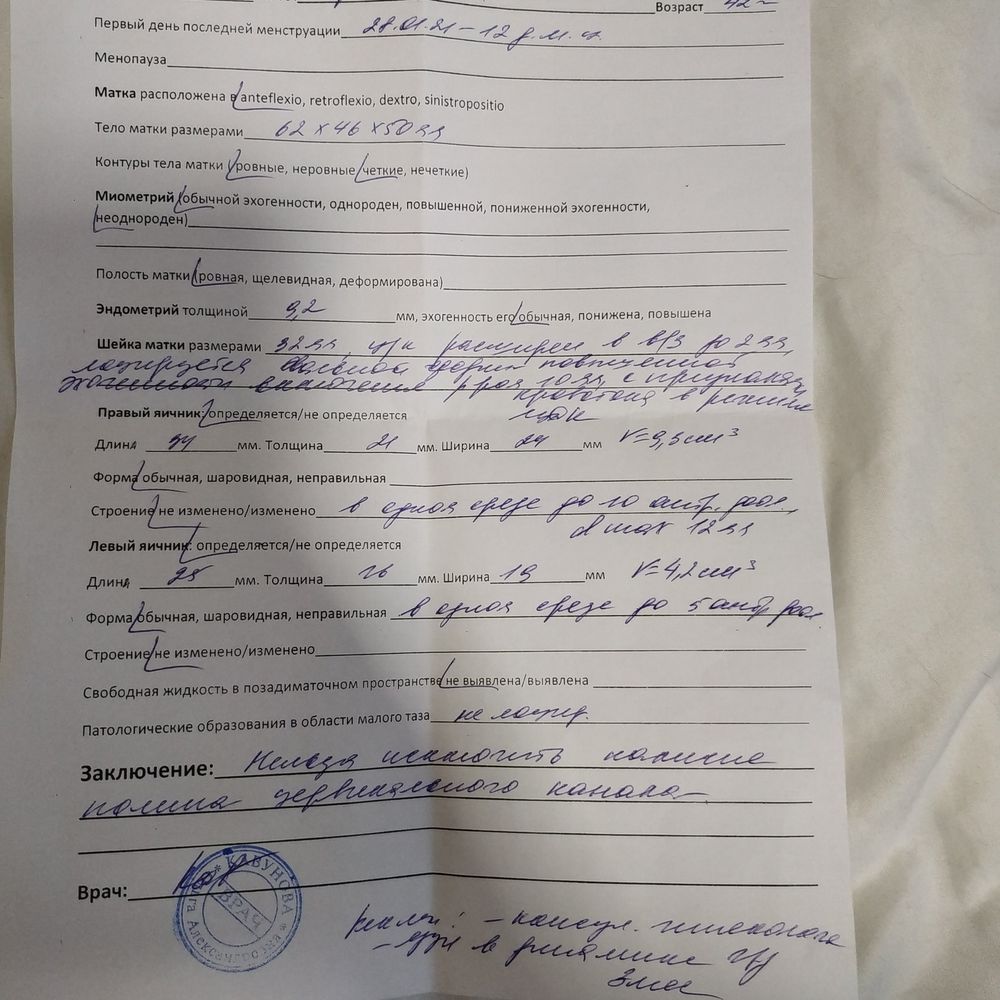 Возраст 42
Первый день последней менструации 28.01.21 – 12 д.м.ц.
Менопауза
Матка расположена в anteflexio, retroflexio, dextro, sinistropositio
Тело матки размерами 62 х 46 х 50 мм
Контуры тела матки (ровные, неровные четкие, нечеткие)
Миометрий (обычной эхогенности, однороден, повышенной, пониженной эхогенности,
неоднороден)
Полость матки (ровная, щелевидная, деформирована)
Эндометрий толщиной 9,2 мм, эхогенность его обычная, понижена, повышена
Шейка матки размерами 32 мм, ц/к расширен в в/з до 2 мм,
лоцируется овальной формы повышенной
эхогенности включение 10 мм, с признаками
кровотока в режиме
ЦДК
Правый яичник: определяется/не определяется
Длина 34 мм. Толщина 21 мм. Ширина 24 мм V=9,3 см³
Форма обычная, шаровидная, неправильная
Строение не изменено/изменено в одном срезе до 10 антр. фол.,
d max 12 мм
Левый яичник: определяется/не определяется
Длина 25 мм. Толщина 16 мм. Ширина 19 мм V=4,2 см³
Форма обычная, шаровидная, неправильная в одном срезе до 5 антр. фол.
Строение не изменено/изменено
Свободная жидкость в позадиматочном пространстве не выявлена/выявлена
Патологические образования в области малого таза не лоцир.
Заключение: Нельзя исключить наличие
полипа цервикального канала
Врач:
КАВУНОВА
ВРАЧ
Александровна
Реком: – консул. гинеколога
– узи в динамике ч/з
3 мес